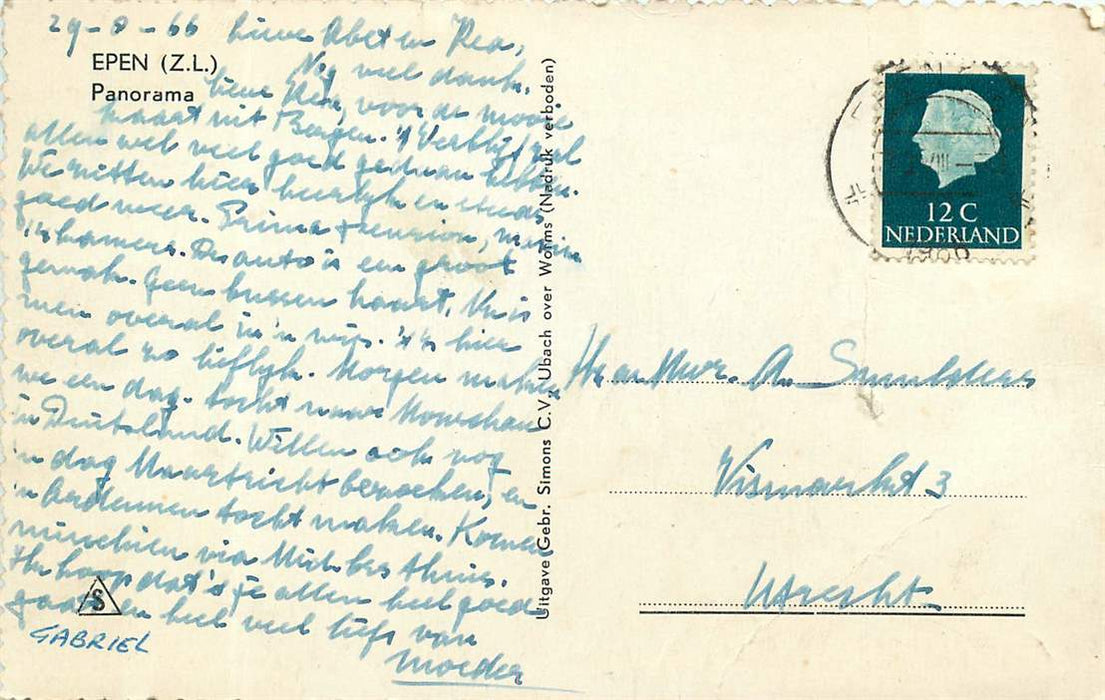 29-8-66 Lieve Abet en Rea,
EPEN (Z.L.)
Panorama
Nog veel dank,
lieve Rea, voor de mooie
kaart uit Bergen. 't Verblijf zal
allen wel veel goed gedaan hebben.
We zitten hier heerlijk en steeds
goed weer. Prima pension, mooie
kamers. De auto is een groot
gemak. Geen bussen haast. Nu is
men overal in 'n wip. 't Is hier
overal zo lieflijk. Morgen maken
we een dag-tocht naar Monschau
in Duitsland. Willen ook nog
'n dag Maastricht bezoeken, en
'n Ardennen tocht maken. Komen
misschien via thuis.
Ik hoop dat 't je allen heel goed
gaat en heel veel liefs van
Moeder
S
GABRIEL
Uitgave (Gebr. Simons C.V. Ubach over Worms (Nadruk verboden)
12 C
NEDERLAND
VIII
1966
Hr en Mvr. A. Smulders
Vismarkt 3
Utrecht